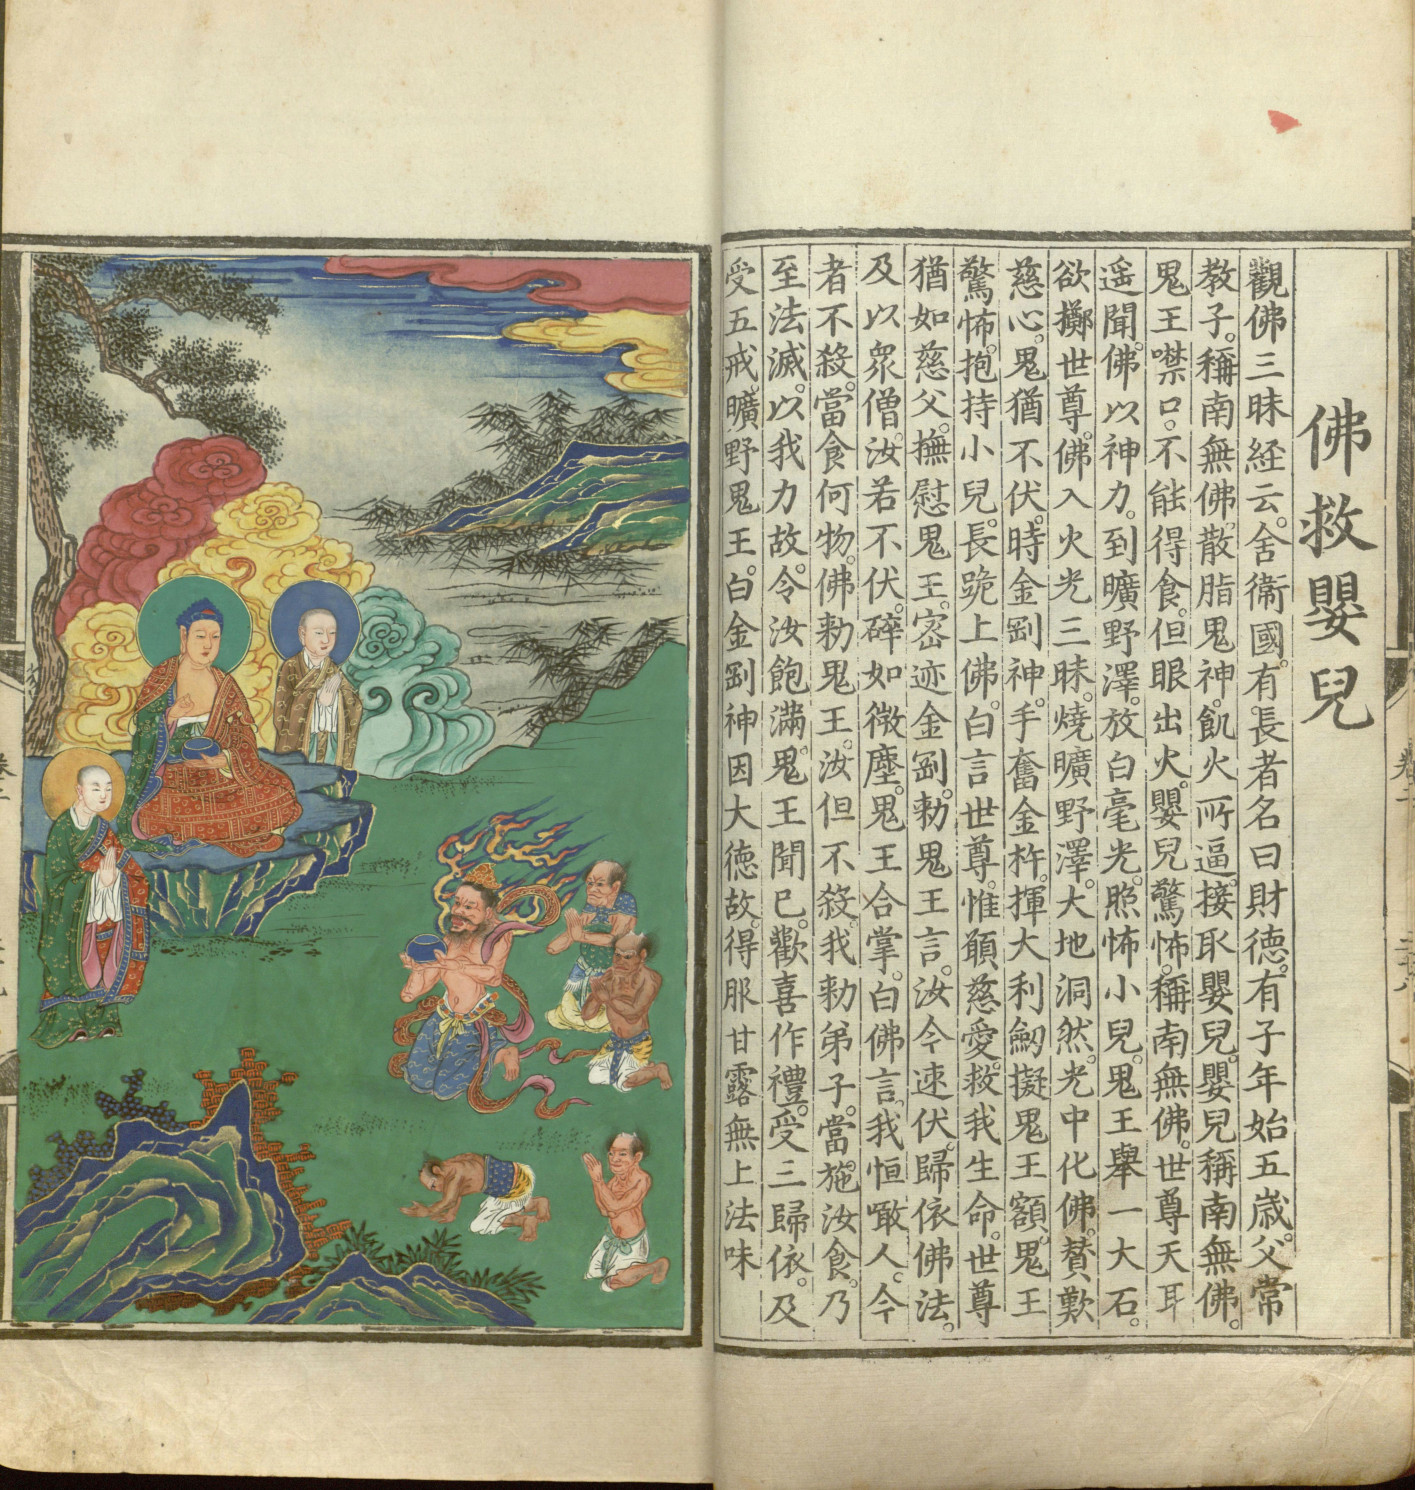 佛救嬰兒
觀佛三昧経云。舍衞國。有長者名曰財德。有子年始五歲。父常
教子。稱南無佛。散脂鬼神。飢火所逼。接取嬰兒。嬰兒稱南無佛。
鬼王噤口。不能得食。但眼出火。嬰兒驚怖。稱南無佛。世尊天耳
遥聞。佛以神力。到曠野澤。放白毫光。照怖小兒。鬼王舉一大石。
欲擲世尊。佛入火光三昧。燒曠野澤。大地洞然。光中化佛。賛歎
慈心。鬼猶不伏。時金剛神。手奮金杵。揮大利劒。擬鬼王額。鬼王
驚怖。抱持小兒。長跪上佛。白言世尊。惟願慈愛。救我生命。世尊
猶如慈父。撫慰鬼王。宻迹金剛。勅鬼王言。汝今速伏。歸依佛法。
及以眾僧。汝若不伏。碎如微塵。鬼王合掌。白佛言。我恒噉人。今
者不殺。當食何物。佛勅鬼王。汝但不殺。我勅弟子。當施汝食。乃
至法滅。以我力故。令汝飽滿。鬼王聞已。歡喜作禮。受三歸依。及
受五戒。曠野鬼王。白金剛神。因大德故。得服甘露無上法味